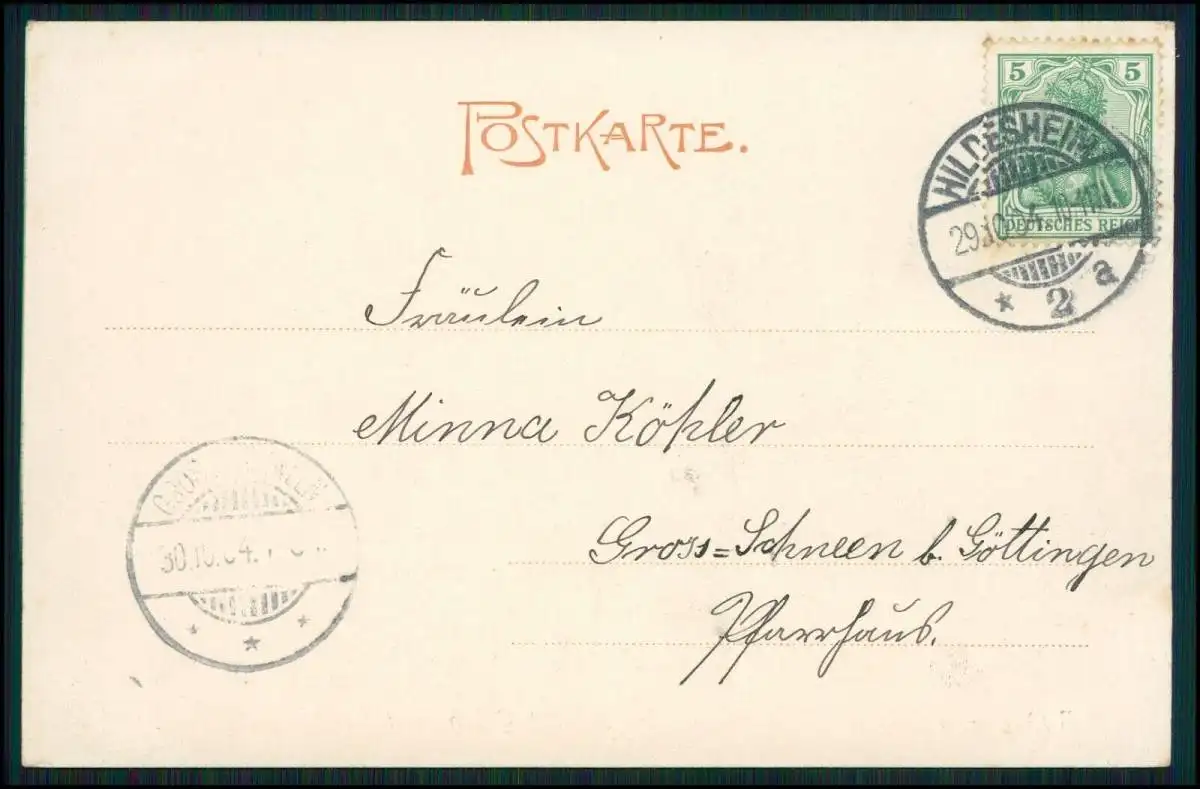 POSTKARTE.
5 5
DEUTSCHES REICH
HILDESHEIM
29.10.04.
* 2 a
Fräulein
Minna Köhler
Gross=Schneen b. Göttingen
Pfarrhaus.
30.10.04.